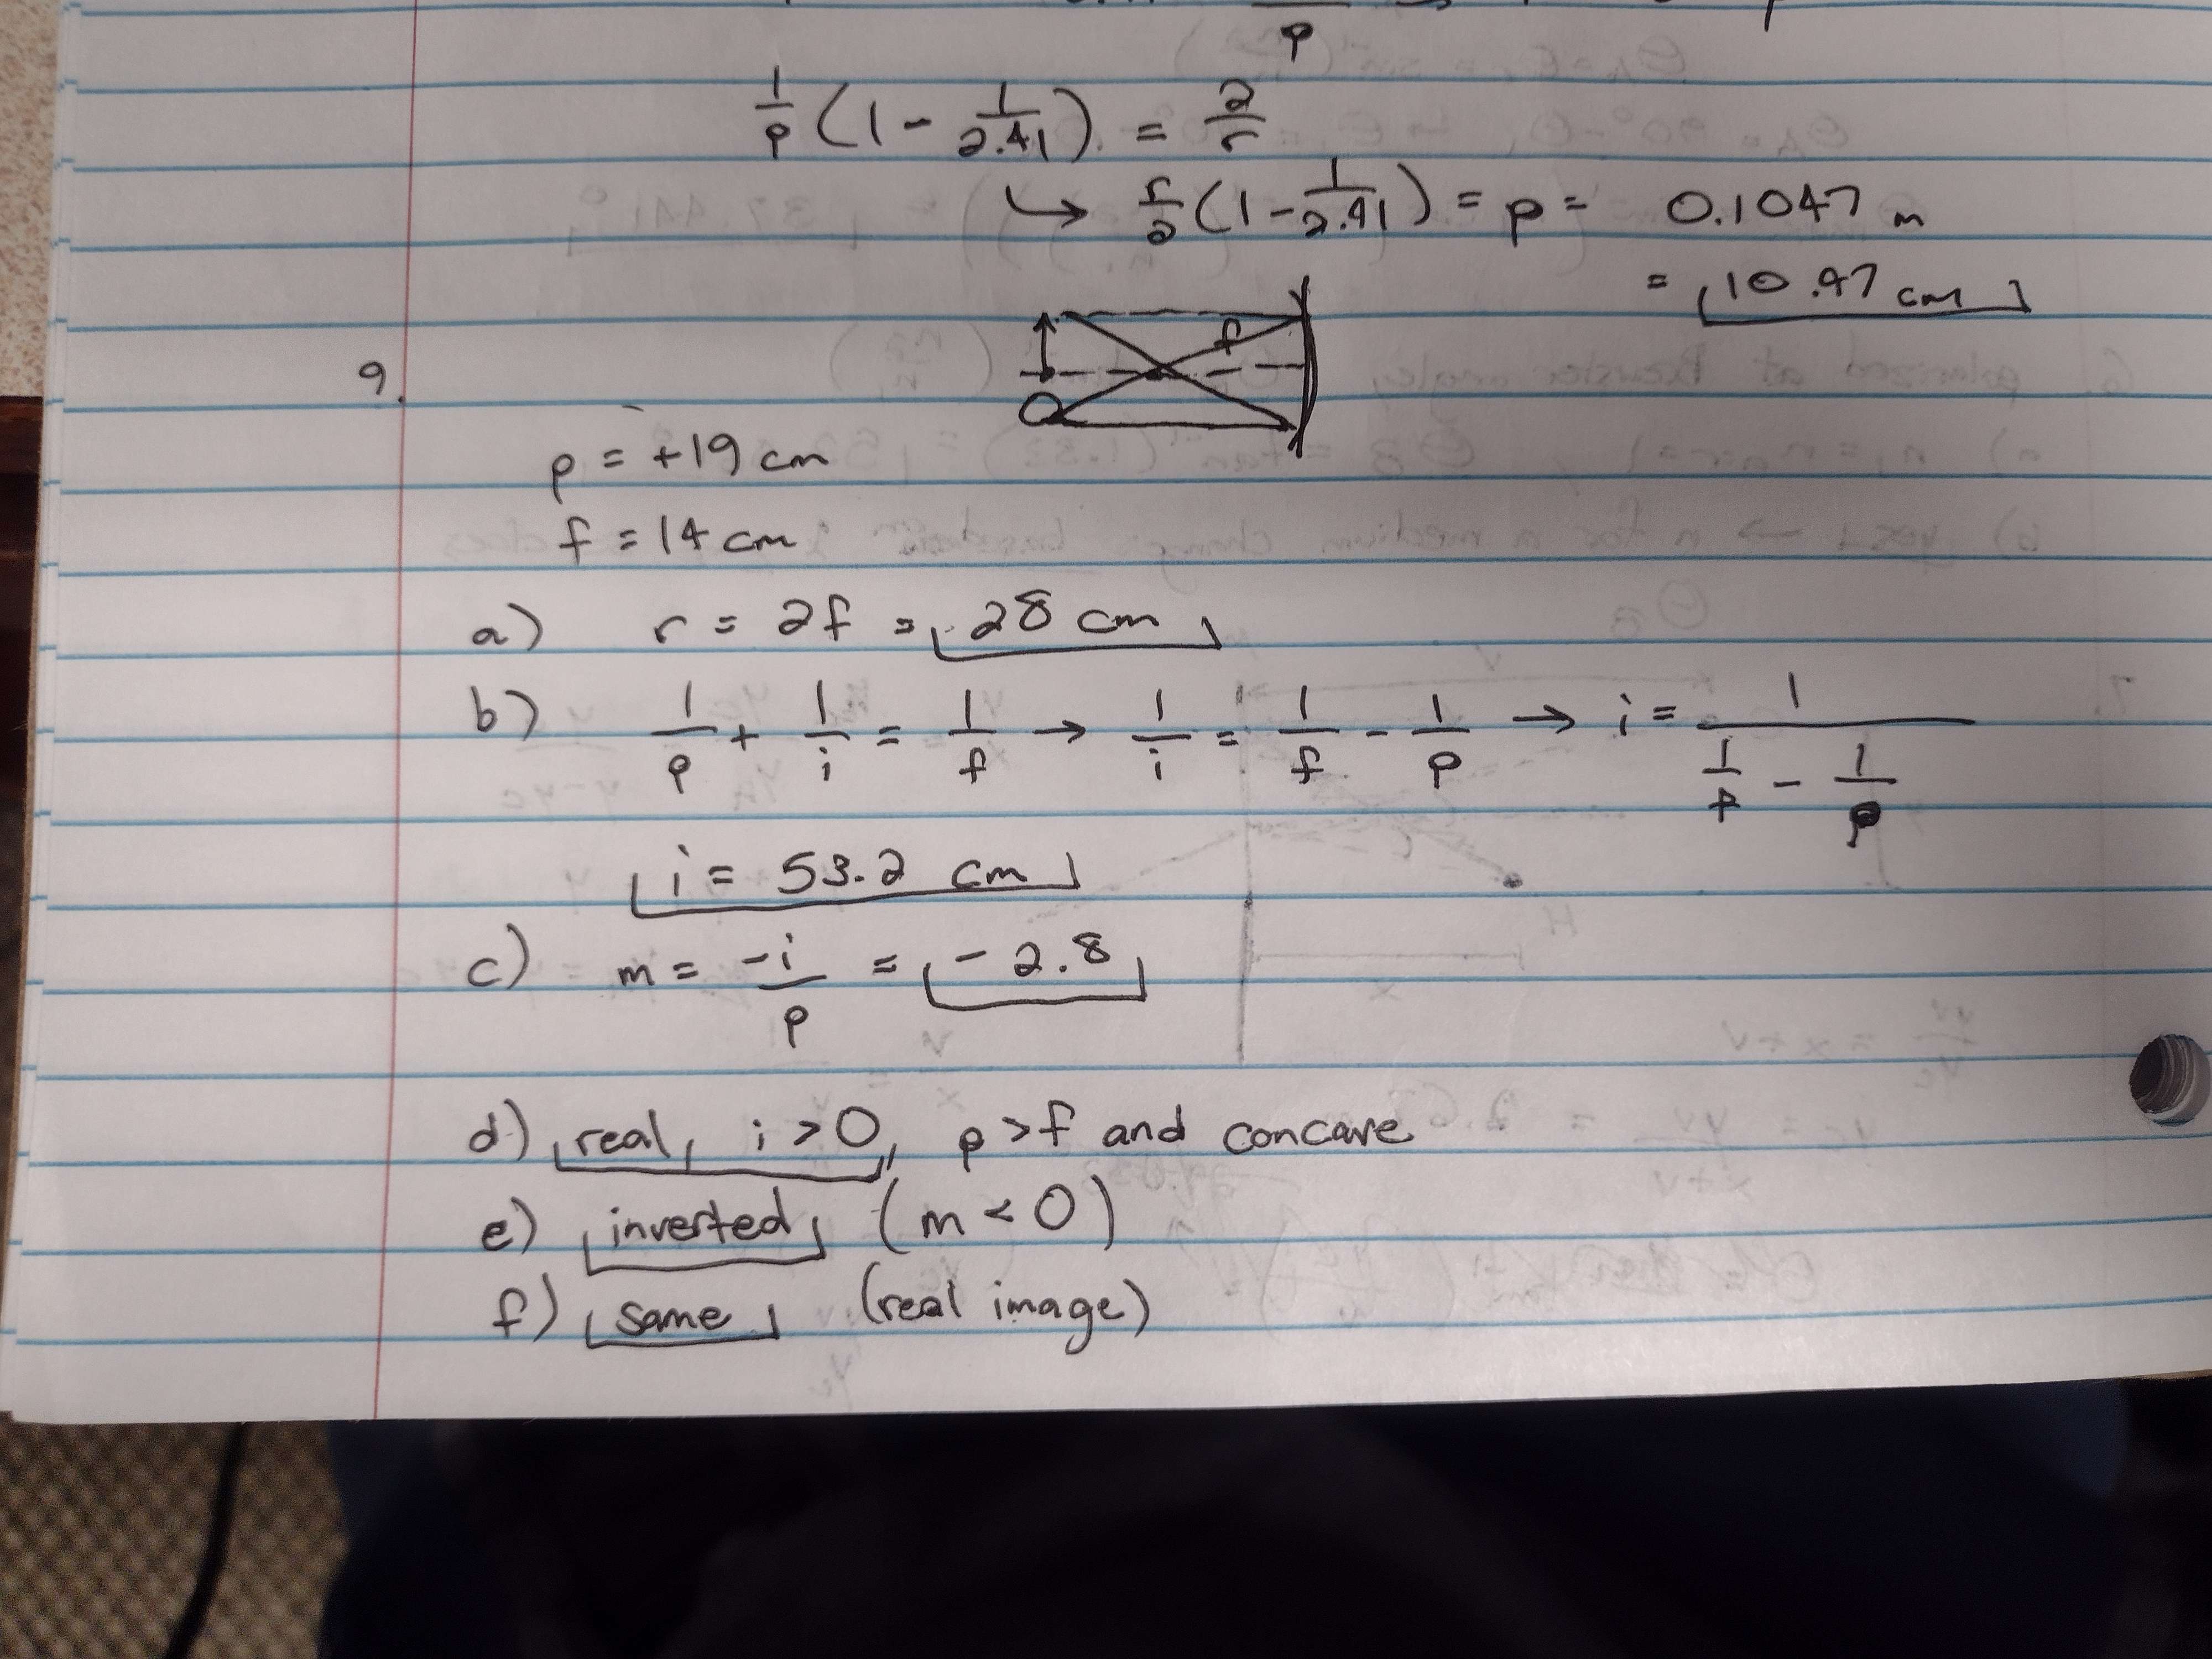 p
1/p (1 - 1/2.41) = 2/r
↳ r/2 (1 - 1/2.41) = p = 0.1047 m
= 10.47 cm
f
9.
p = +19 cm
f = 14 cm
a) r = 2f = 28 cm
b) 1/p + 1/i = 1/f → 1/i = 1/f - 1/p → i = 1/(1/f - 1/p)
i = 53.2 cm
c) m = -i/p = -2.8
d) real, i > 0, p > f and concave
e) inverted (m < 0)
f) same (real image)